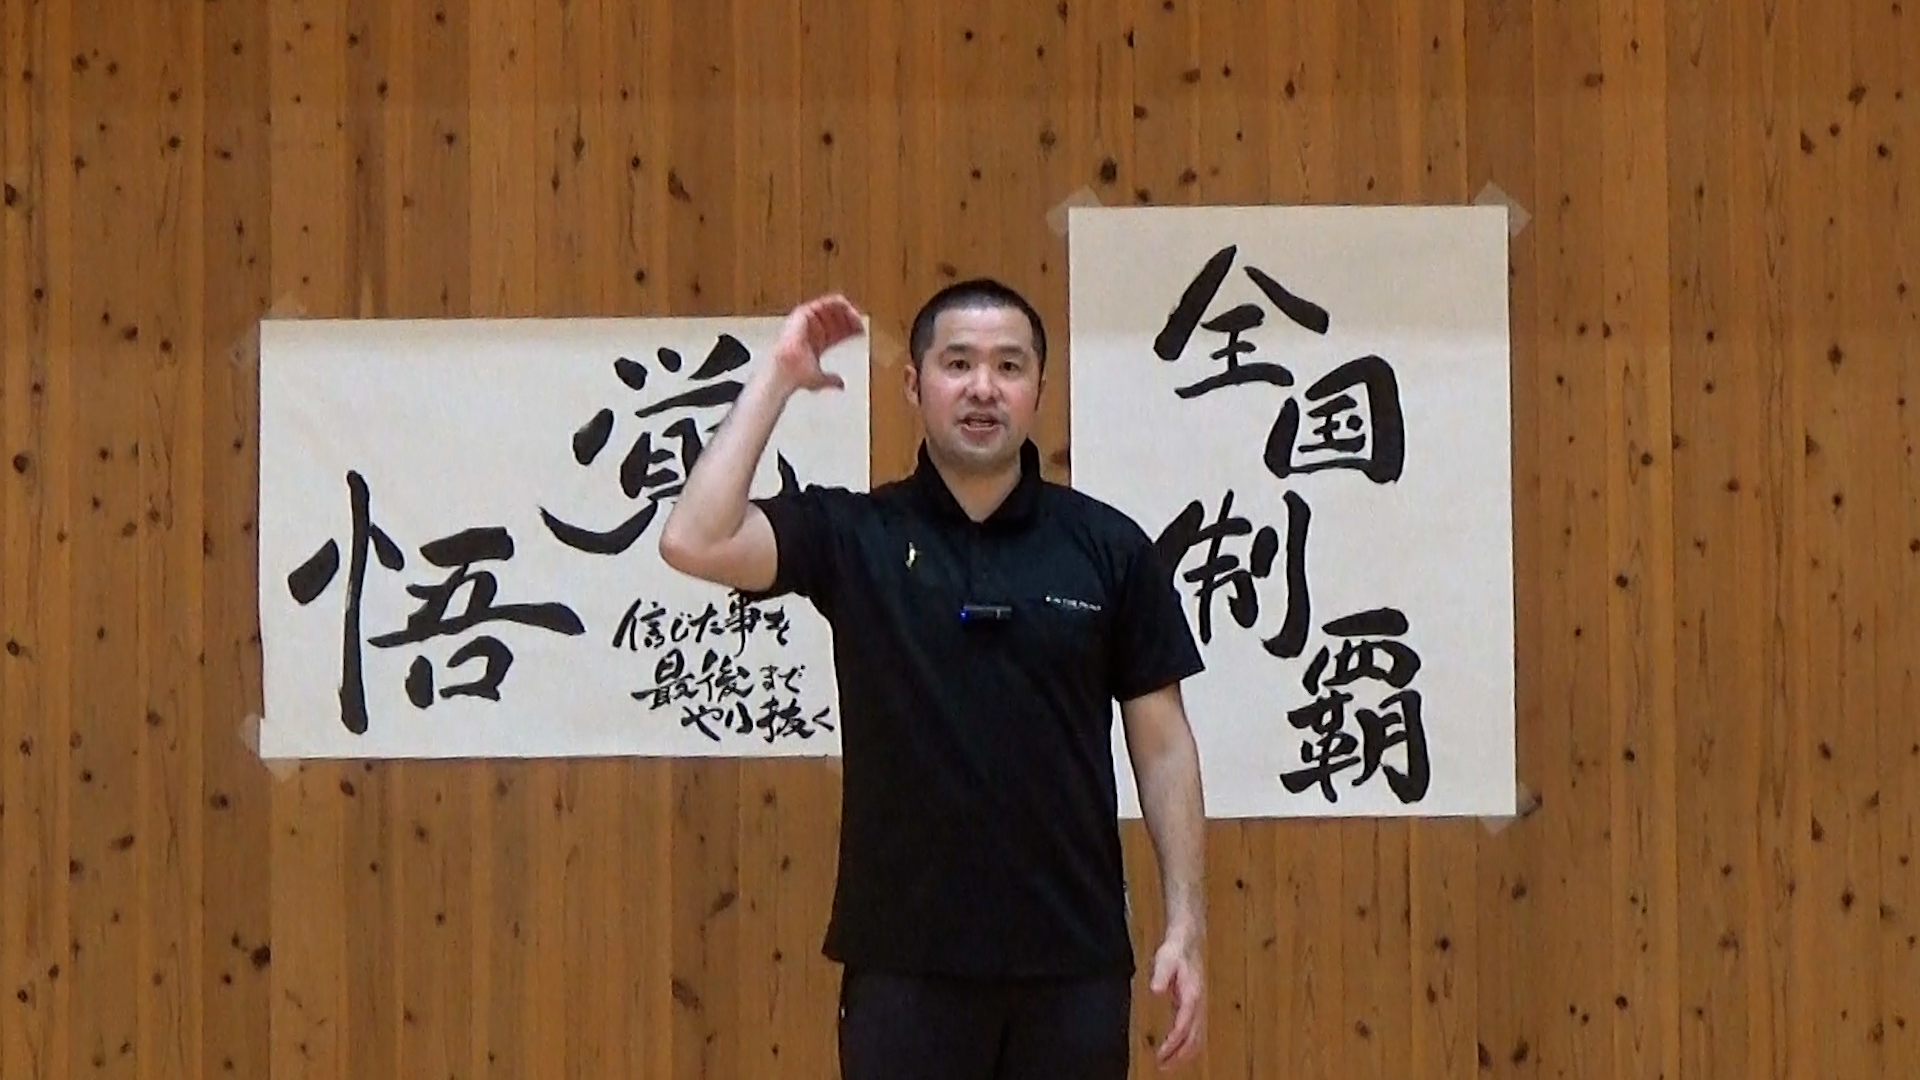 覚悟
信じた事を
最後まで
やり抜く
全国制覇